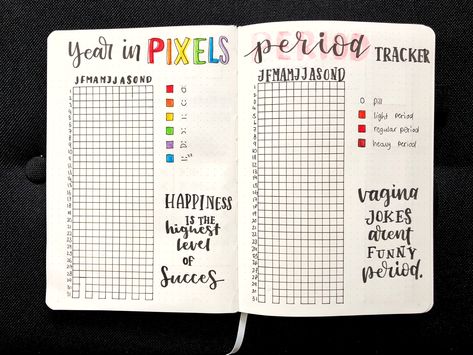 Year in PIXELS
JFMAMJJASOND
1
2
3
4
5
6
7
8
9
10
11
12
13
14
15
16
17
18
19
20
21
22
23
24
25
26
27
28
29
30
31
HAPPINESS
IS THE
highest
level
OF
Succes
PERIOD
period TRACKER
JFMAMJJASOND
1
2
3
4
5
6
7
8
9
10
11
12
13
14
15
16
17
18
19
20
21
22
23
24
25
26
27
28
29
30
31
O pill
light period
regular period
heavy period
vagina
JOKES
arent
FUNNY
period.